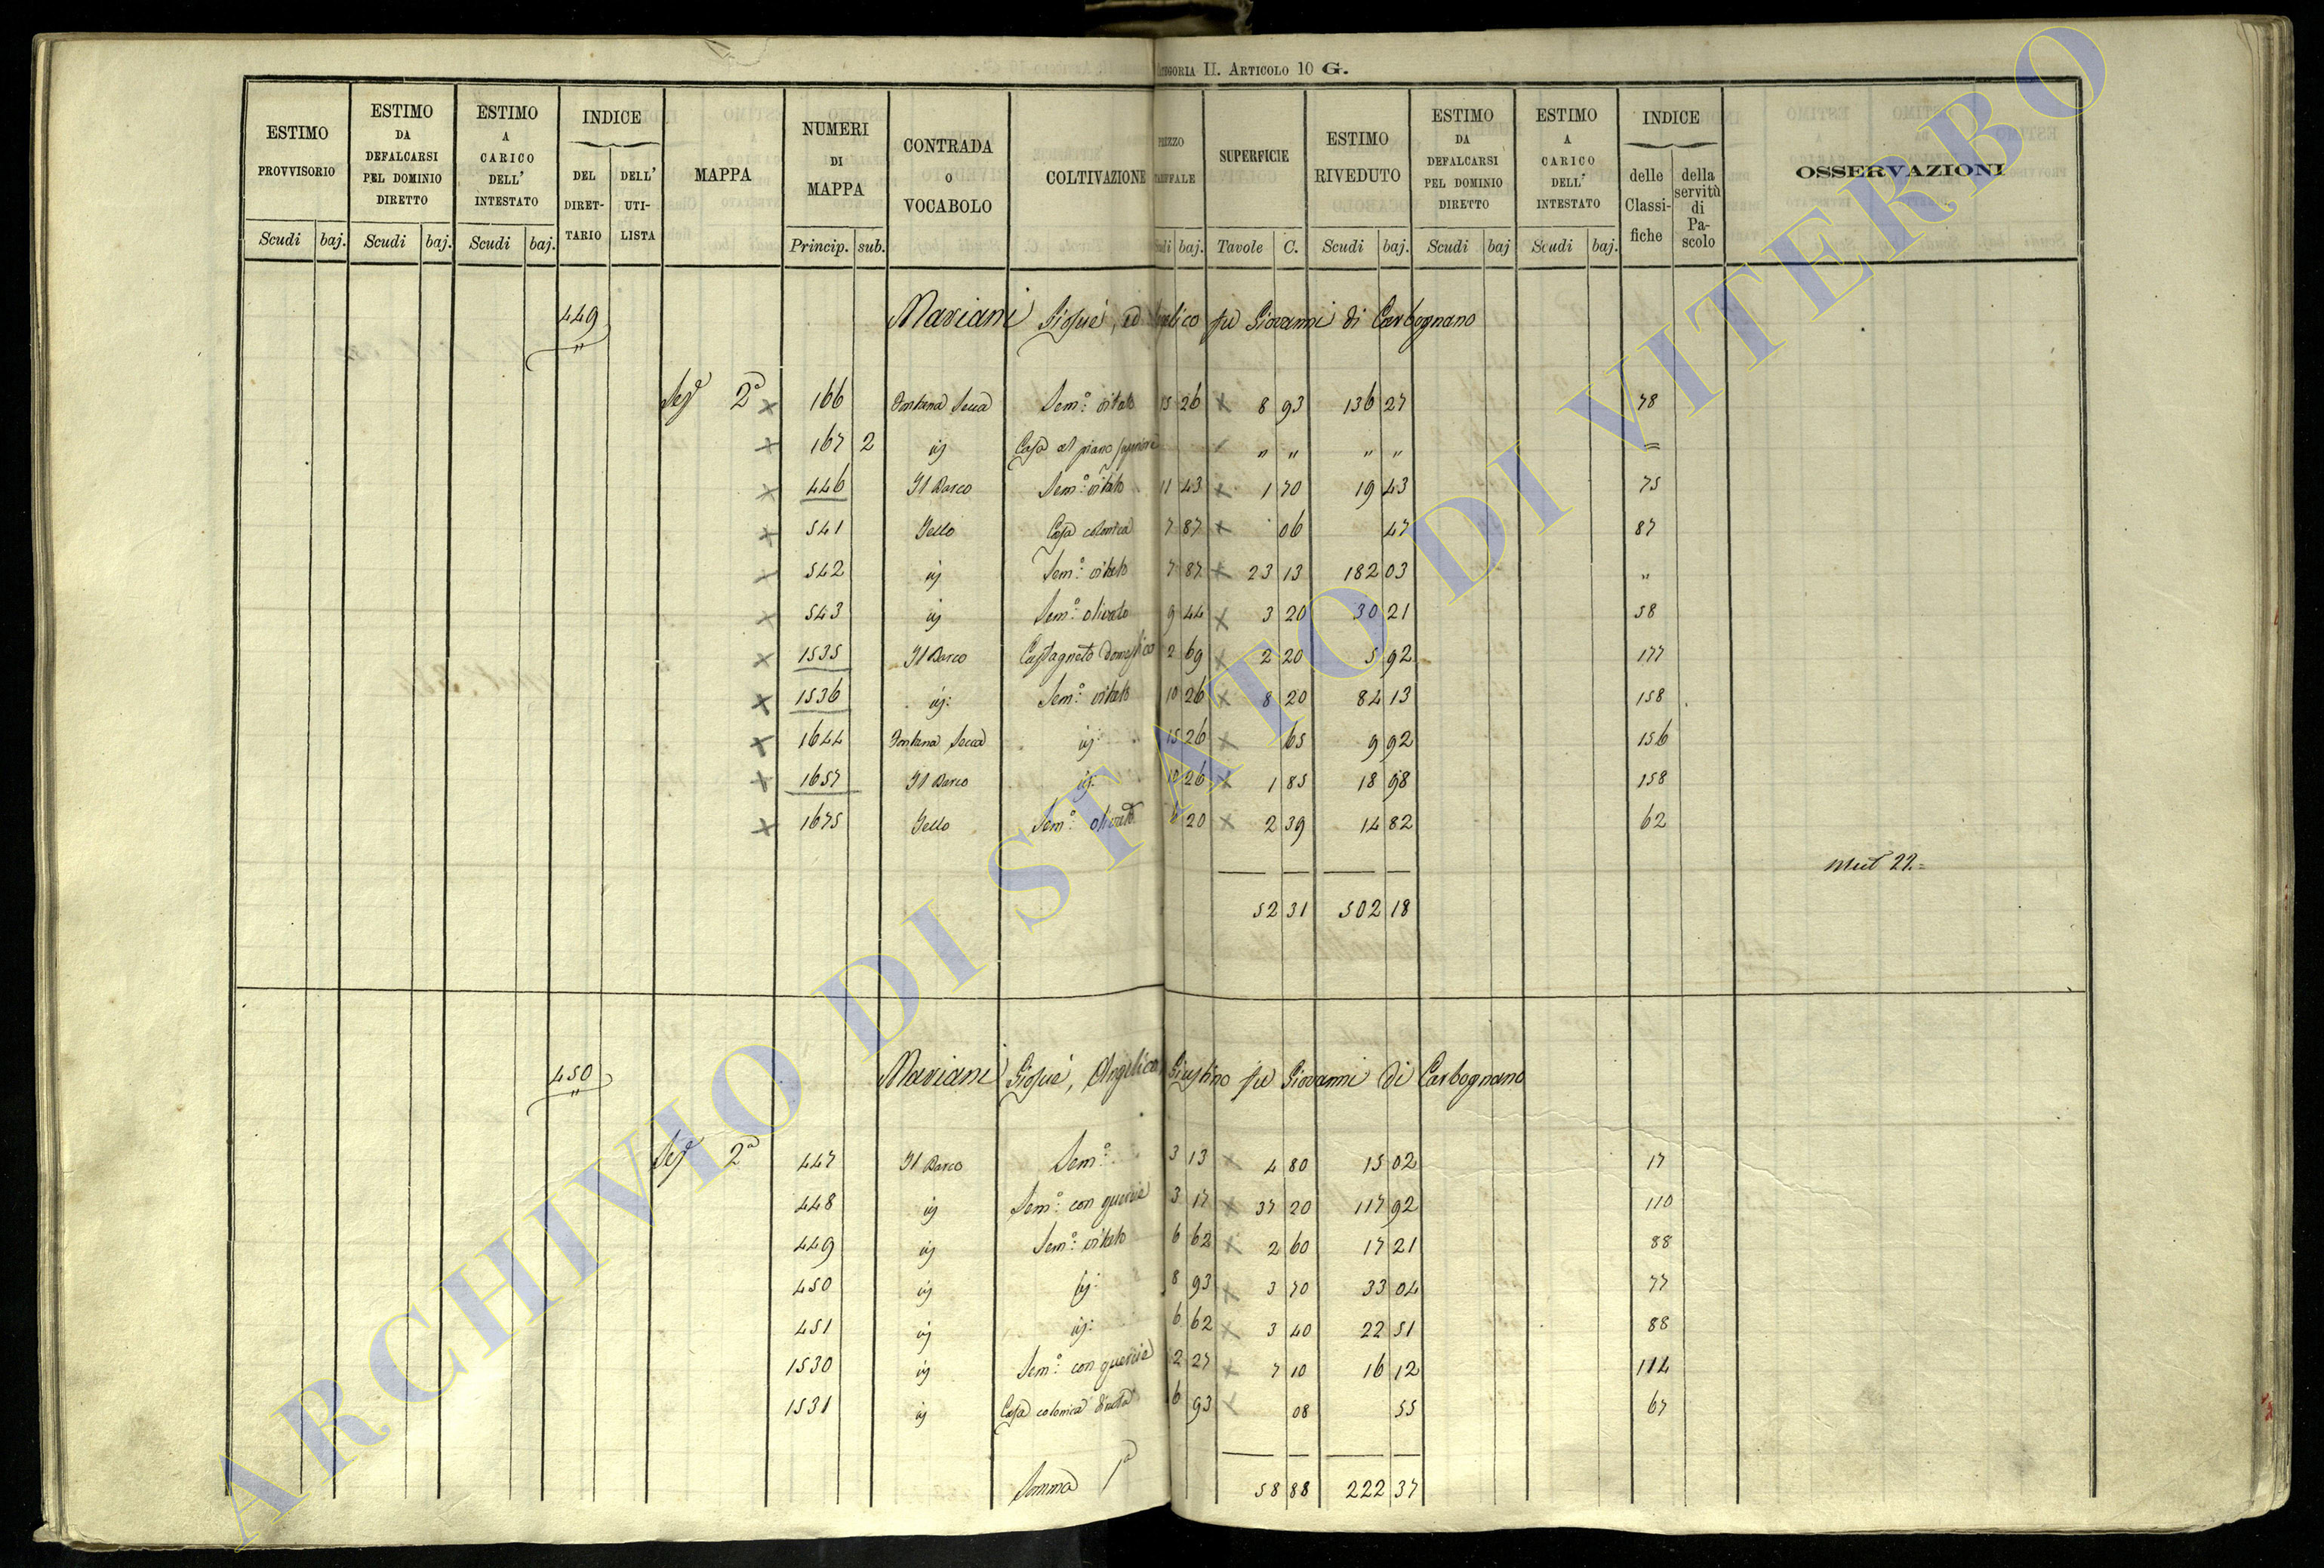 CATEGORIA II. ARTICOLO 10 G.
ESTIMO PROVVISORIO | ESTIMO DA DEFALCARSI PEL DOMINIO DIRETTO | ESTIMO A CARICO DELL' INTESTATO | INDICE DEL DIRETTARIO | DELL' UTILISTA | MAPPA | NUMERI DI MAPPA | CONTRADA O VOCABOLO | COLTIVAZIONE | PREZZO TARIFFALE | SUPERFICIE | ESTIMO RIVEDUTO | ESTIMO DA DEFALCARSI PEL DOMINIO DIRETTO | ESTIMO A CARICO DELL' INTESTATO | INDICE delle Classifiche | della servitù di Pascolo | OSSERVAZIONI
Scudi | baj. | Scudi | baj. | Scudi | baj. | Princip. | sub. | Scudi | baj. | Tavole | C. | Scudi | baj. | Scudi | baj | Scudi | baj.
449 Mariani Giosuè, ed fu Giovanni di Carbognano
"
Sez 2ª × 166 Fontana Secca Sem.º vitato 15 26 × 8 93 136 27 78
× 167 2 ij Casa al piano superiore " " " " =
× 446 Il Barco Sem.º vitato 11 43 × 1 70 19 43 75
× 541 Tello Casa colonica 7 87 × 06 47 87
× 542 ij Sem.º vitato 7 87 × 23 13 182 03 "
× 543 ij Sem.º olivato 9 44 × 3 20 30 21 58
× 1535 Il Barco Castagneto domestico 2 69 × 2 20 5 92 177
× 1536 ij: Sem.º vitato 10 26 × 8 20 84 13 158
× 1644 Fontana Secca ij 15 26 × 65 9 92 156
× 1657 Il Barco ij: 10 26 × 1 85 18 98 158
× 1675 Tello Sem.º olivato 6 20 × 2 39 14 82 62
Mut 22.=
52 31 502 18
450 Mariani Giosuè, Angelico, Giustino fu Giovanni di Carbognano
"
Sez 2ª 447 Il Barco Sem.º 3 13 × 4 80 15 02 17
448 ij Sem.º con quercie 3 17 × 37 20 117 92 110
449 ij Sem.º vitato 6 62 × 2 60 17 21 88
450 ij ij: 8 93 × 3 70 33 04 77
451 ij ij: 6 62 × 3 40 22 51 88
1530 ij Sem.º con quercie 2 27 × 7 10 16 12 114
1531 ij Casa colonica diruta 6 93 × 08 55 67
Somma 1ª 58 88 222 37
ARCHIVIO DI STATO DI VITERBO